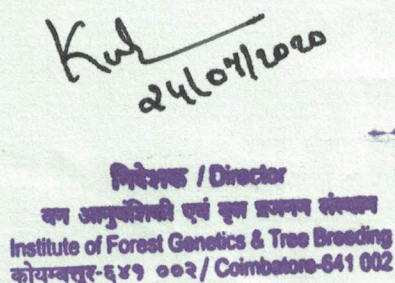 24/07/2020
निदेशक / Director
वन आनुवंशिकी एवं वृक्ष प्रजनन संस्थान
Institute of Forest Genetics & Tree Breeding
कोयम्बत्तूर-६४१ ००२ / Coimbatore-641 002